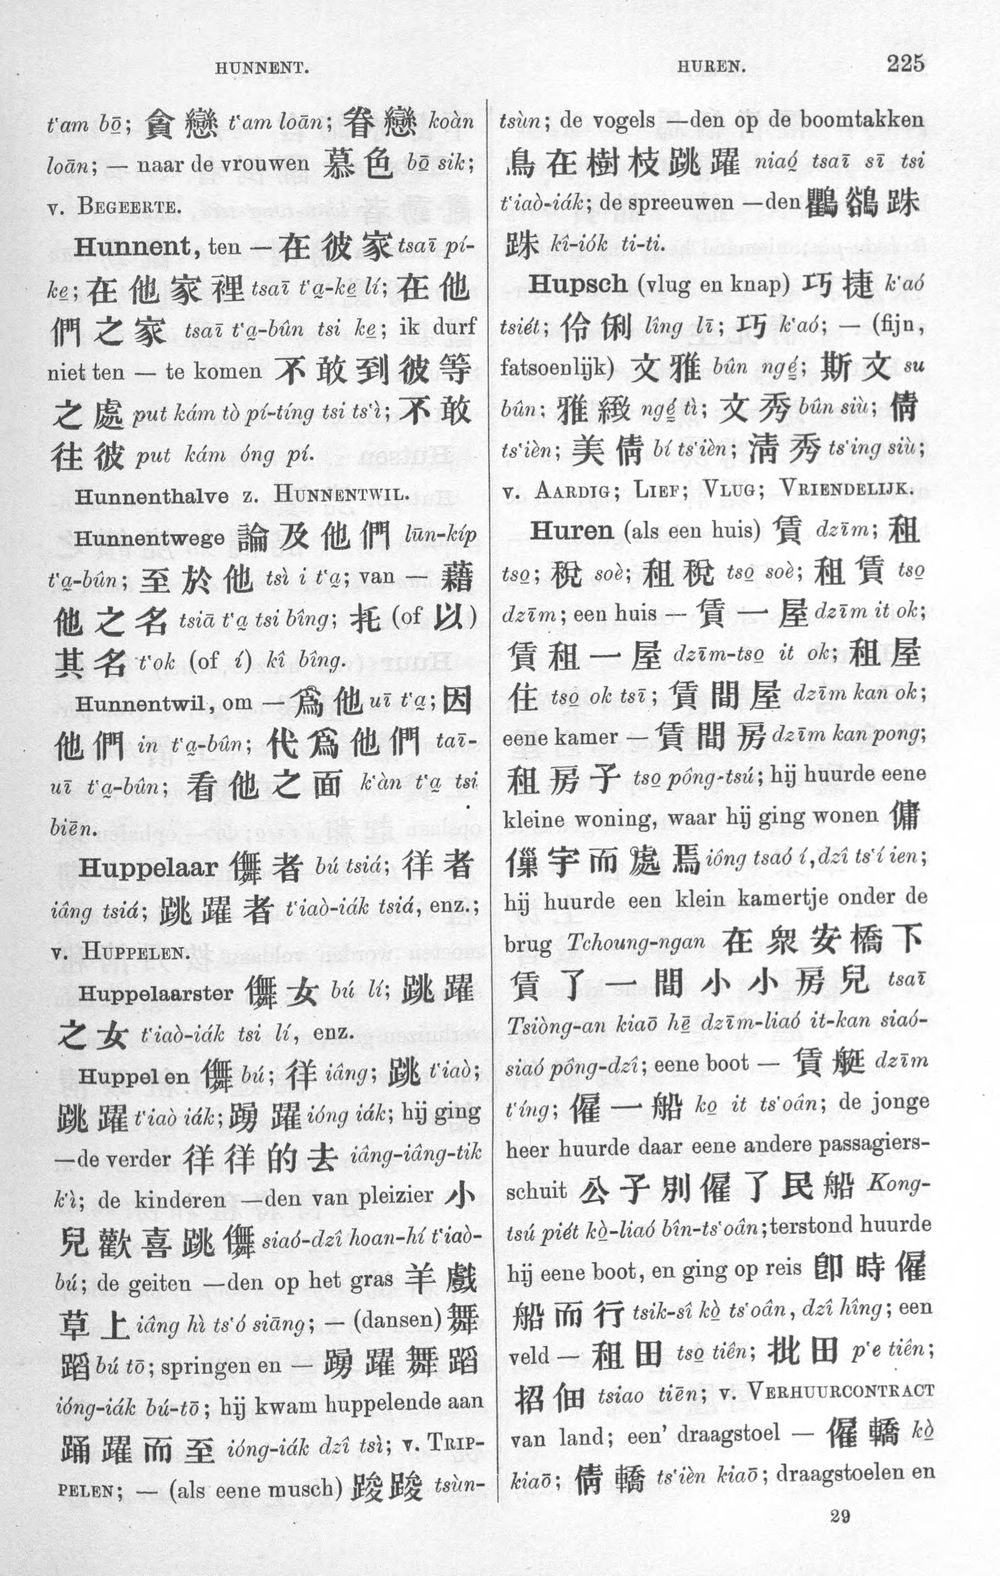 HUNNENT.
HUREN.
225
t'am bō; 貪戀 t'am loān; 眷戀 koàn
loān; — naar de vrouwen 慕色 bō sik;
v. BEGEERTE.
Hunnent, ten — 在彼家 tsaī pí-
ke; 在他家裡 tsaī t'a-ke lí; 在他
們之家 tsaī t'a-bûn tsi ke; ik durf
niet ten — te komen 不敢到彼等
之處 put kám tò pí-tíng tsi ts'ì; 不敢
往彼 put kám óng pí.
Hunnenthalve z. HUNNENTWIL.
Hunnentwege 論及他們 lūn-kíp
t'a-bûn; 至於他 tsì i t'a; van — 藉
他之名 tsiā t'a tsi bîng; 托 (of 以)
其名 t'ok (of í) kî bîng.
Hunnentwil, om — 爲他 uī t'a; 因
他們 in t'a-bûn; 代爲他們 taī-
uī t'a-bûn; 看他之面 k'àn t'a tsi
biēn.
Huppelaar 儛者 bú tsiá; 徉者
iâng tsiá; 跳躍者 t'iaò-iák tsiá, enz.;
v. HUPPELEN.
Huppelaarster 儛女 bú lí; 跳躍
之女 t'iaò-iák tsi lí, enz.
Huppelen 儛 bú; 徉 iâng; 跳 t'iaò;
跳躍 t'iaò iák; 踴躍 ióng iák; hij ging
—de verder 徉徉的去 iâng-iâng-tik
k'ì; de kinderen —den van pleizier 小
兒歡喜跳儛 siaó-dzî hoan-hí t'iaò-
bú; de geiten —den op het gras 羊戲
草上 iâng hì ts'ó siāng; — (dansen) 舞
蹈 bú tō; springen en — 踴躍舞蹈
ióng-iák bú-tō; hij kwam huppelende aan
踊躍而至 ióng-iák dzî tsì; v. TRIP-
PELEN; — (als eene musch) 踆踆 tsùn-
tsùn; de vogels —den op de boomtakken
鳥在樹枝跳躍 niaó tsaī sī tsi
t'iaò-iák; de spreeuwen —den 鸜鵒跦
跦 kî-iók ti-ti.
Hupsch (vlug en knap) 巧捷 k'aó
tsiét; 伶俐 lîng lī; 巧 k'aó; — (fijn,
fatsoenlijk) 文雅 bûn ngé; 斯文 su
bûn; 雅緻 ngé tì; 文秀 bûn siù; 倩
ts'ièn; 美倩 bí ts'ièn; 清秀 ts'ing siù;
v. AARDIG; LIEF; VLUG; VRIENDELIJK.
Huren (als een huis) 賃 dzīm; 租
tso; 稅 soè; 租稅 tso soè; 租賃 tso
dzīm; een huis — 賃一屋 dzīm it ok;
賃租一屋 dzīm-tso it ok; 租屋
住 tso ok tsī; 賃間屋 dzīm kan ok;
eene kamer — 賃間房 dzīm kan pong;
租房子 tso pông-tsú; hij huurde eene
kleine woning, waar hij ging wonen 傭
僳宇而處焉 iông tsaó í, dzî ts'í ien;
hij huurde een klein kamertje onder de
brug Tchoung-ngan 在衆安橋下
賃了一間小小房兒 tsaī
Tsiòng-an kiaō hē dzīm-liaó it-kan siaó-
siaó pông-dzî; eene boot — 賃艇 dzīm
t'íng; 僱一船 ko it ts'oân; de jonge
heer huurde daar eene andere passagiers-
schuit 公子別僱了民船 Kong-
tsú piét kò-liaó bîn-ts'oân; terstond huurde
hij eene boot, en ging op reis 卽時僱
船而行 tsik-sî kò ts'oân, dzî hîng; een
veld — 租田 tso tiên; 批田 p'e tiên;
招佃 tsiao tiēn; v. VERHUURCONTRACT
van land; een' draagstoel — 僱轎 kò
kiaō; 倩轎 ts'ièn kiaō; draagstoelen en
29